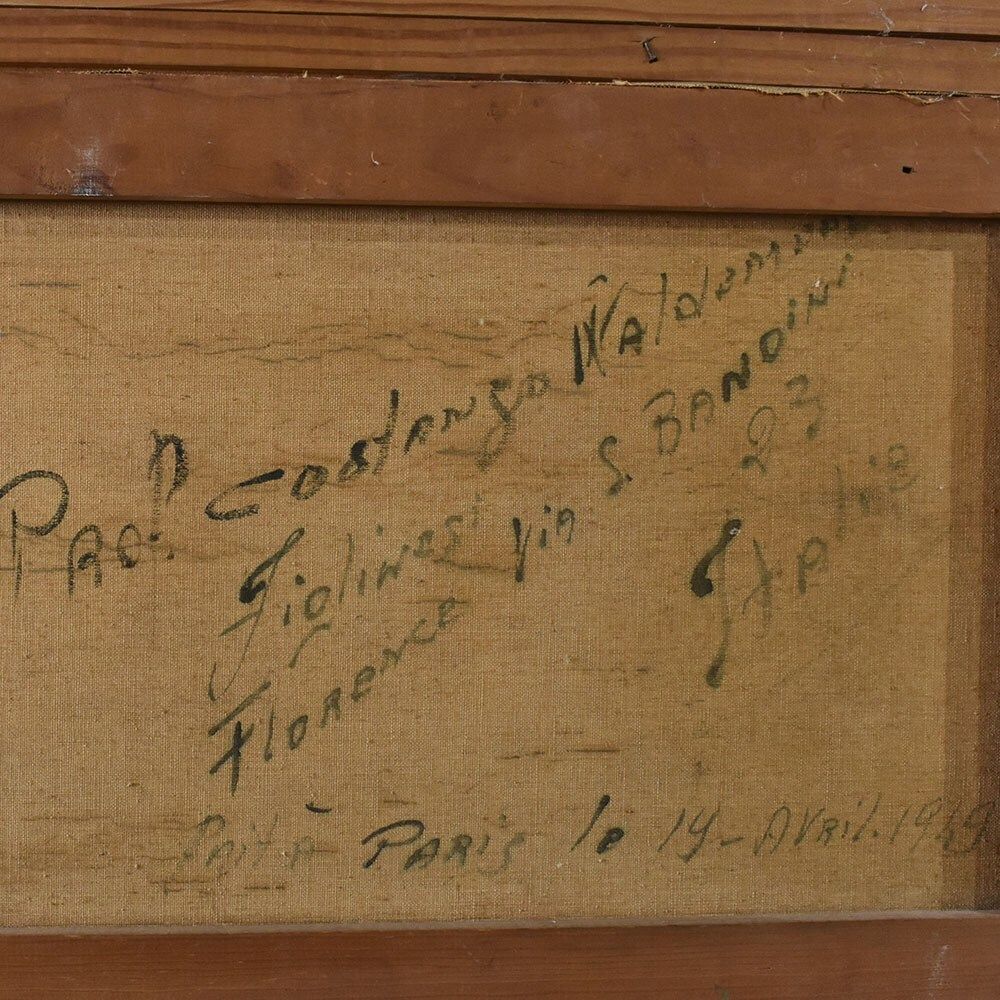 Costanzo Waldemar
Figlinesi via S. BANDINI
23
FLORENCE Italie
Fait À PARis le 19 - AVRil. 1949